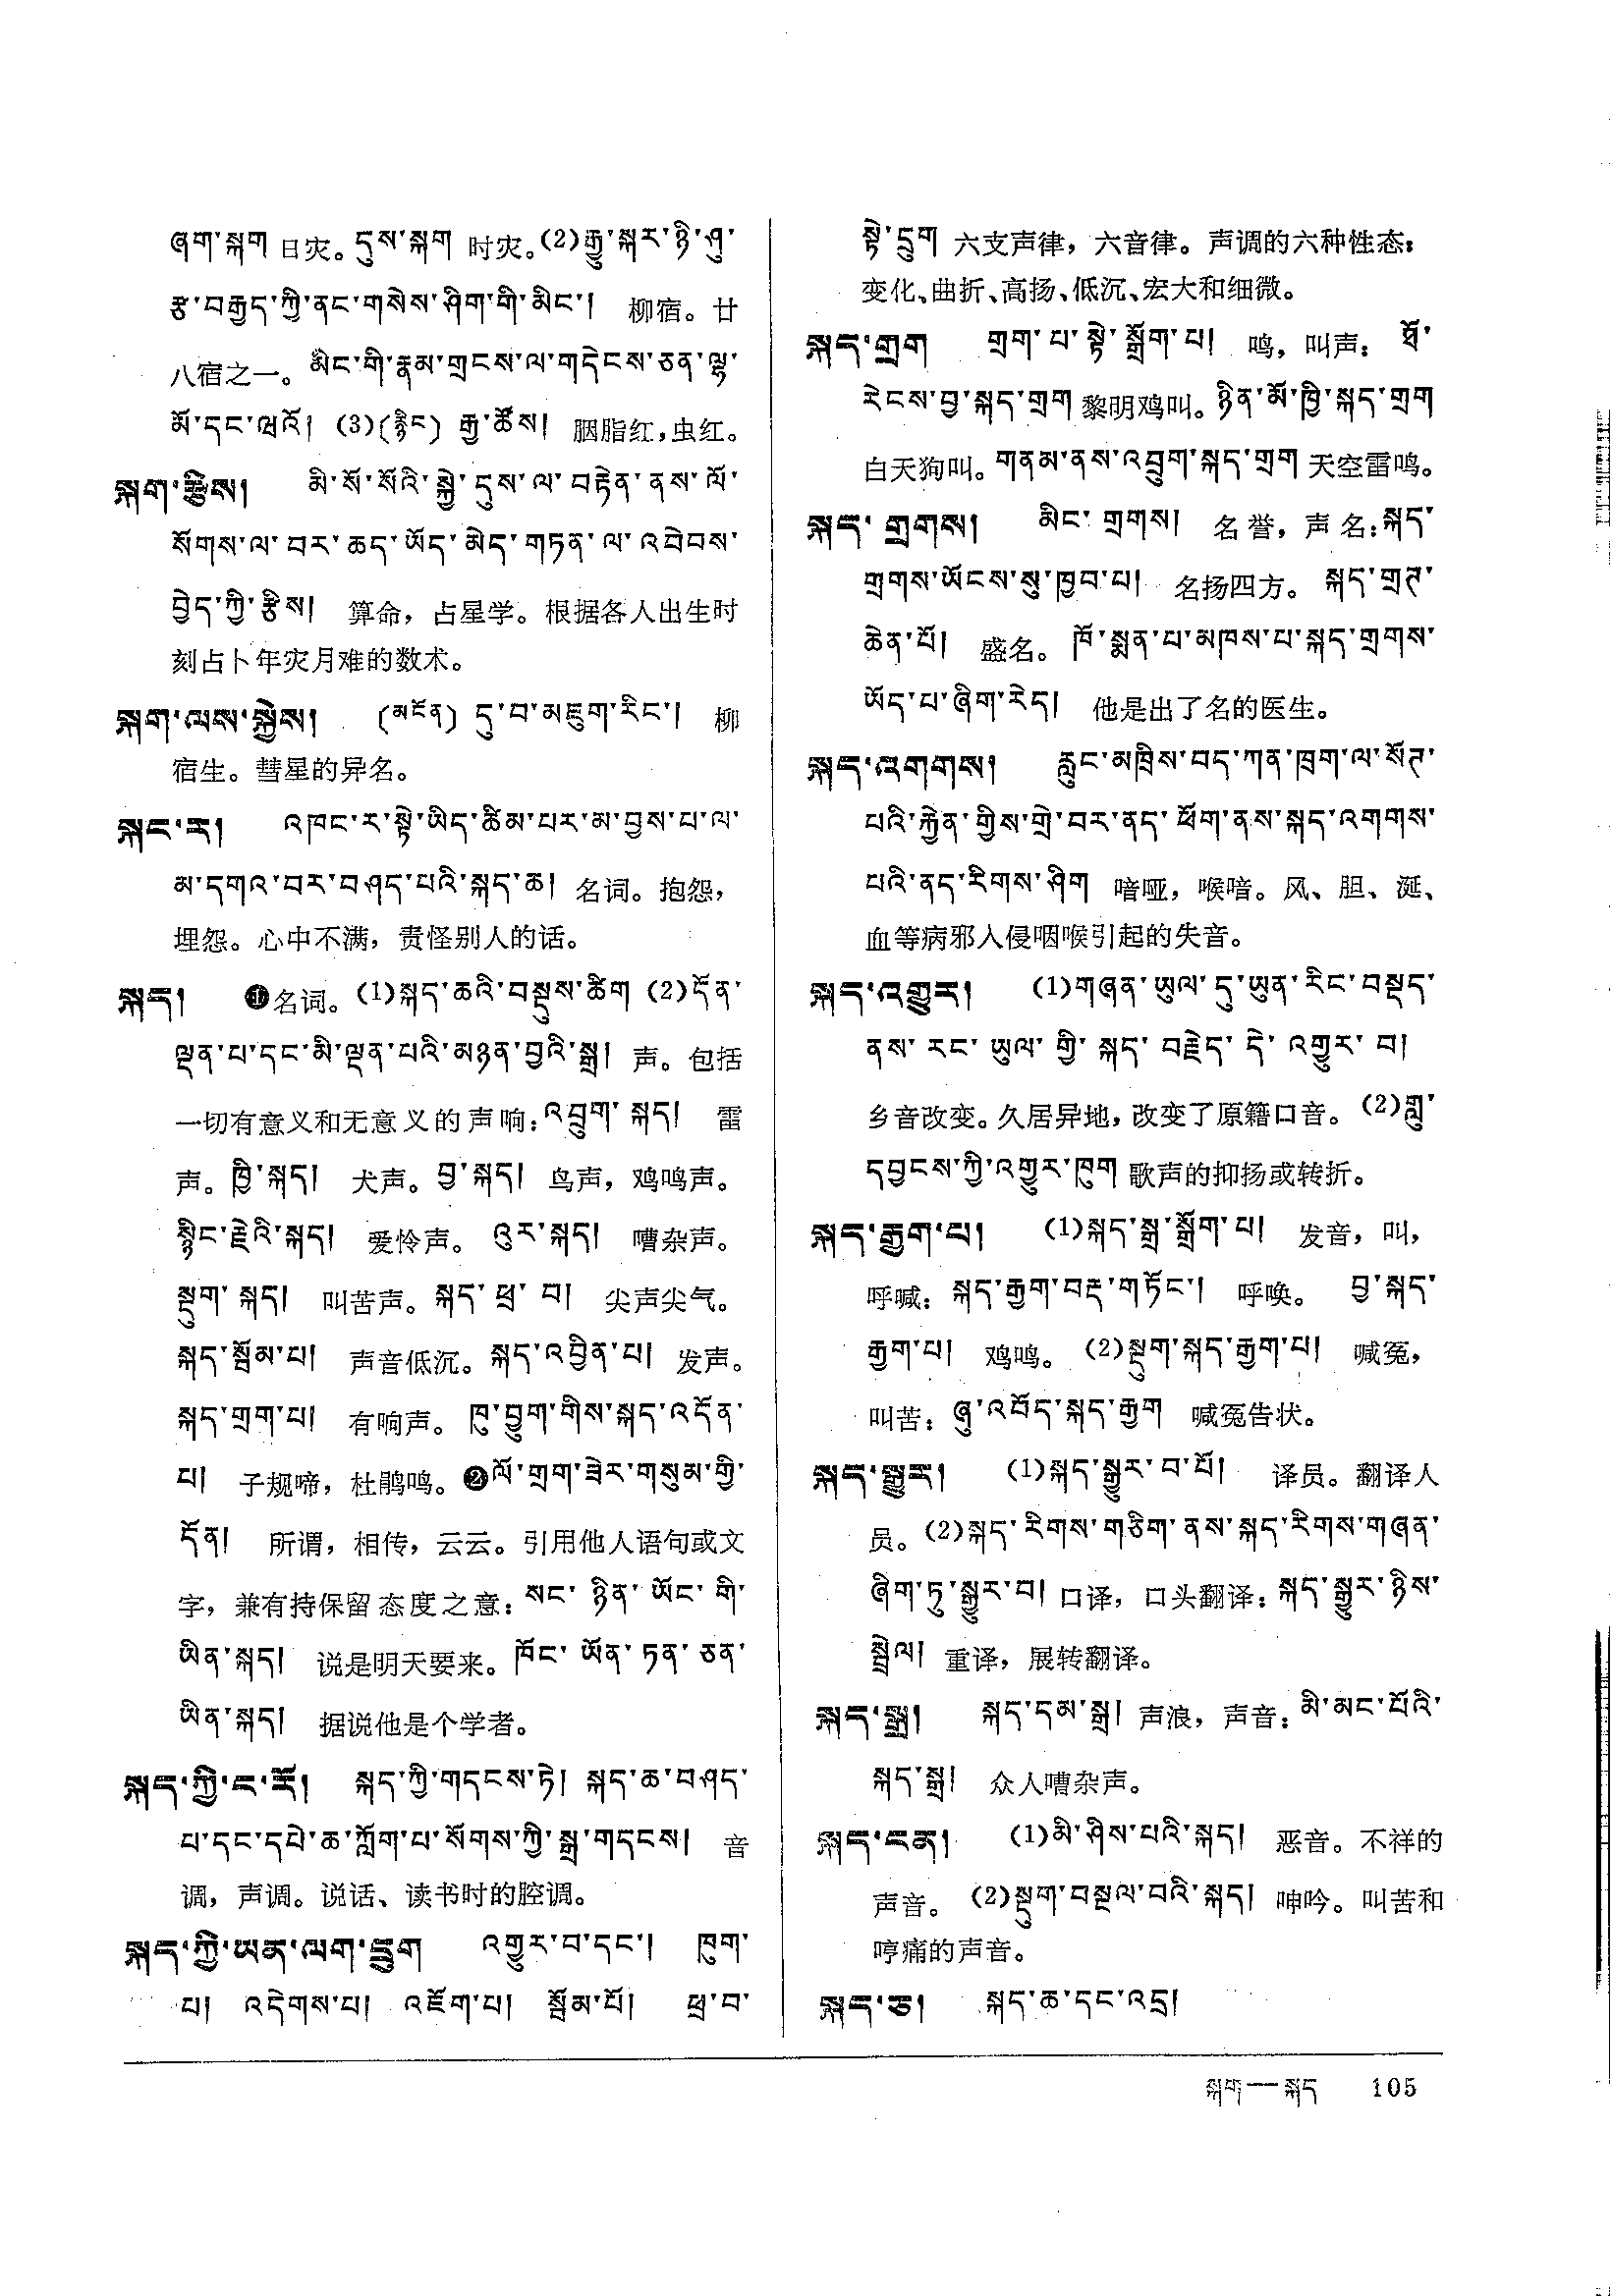 ཞག་སྐག 日灾。དུས་སྐག 时灾。(2)རྒྱུ་སྐར་ཉི་ཤུ་
རྩ་བརྒྱད་ཀྱི་ནང་གསེས་ཤིག་གི་མིང་། 柳宿。廿
八宿之一。མིང་གི་རྣམ་གྲངས་ལ་གདེངས་ཅན་ལྷ་
མོ་དང་ཝའོ། (3)(རྙིང) རྒྱ་ཚོས། 胭脂红,虫红。
སྐག་རྩིས། མི་སོ་སོའི་སྐྱེ་དུས་ལ་བརྟེན་ནས་ལོ་
སོགས་ལ་བར་ཆད་ཡོད་མེད་གཏན་ལ་འབེབས་
བྱེད་ཀྱི་རྩིས། 算命，占星学。根据各人出生时
刻占卜年灾月难的数术。
སྐག་ལས་སྐྱེས། (མངོན) དུ་བ་མཇུག་རིང་། 柳
宿生。彗星的异名。
སྐང་ར། འཁང་ར་སྟེ་ཡིད་ཚིམ་པར་མ་བྱས་པ་ལ་
མ་དགའ་བར་བཤད་པའི་སྐད་ཆ། 名词。抱怨，
埋怨。心中不满，责怪别人的话。
སྐད། ❶名词。(1)སྐད་ཆའི་བསྡུས་ཚིག (2)དོན་
ལྡན་པ་དང་མི་ལྡན་པའི་མཉན་བྱའི་སྒྲ། 声。包括
一切有意义和无意义的声响：འབྲུག་སྐད། 雷
声。ཁྱི་སྐད། 犬声。བྱ་སྐད། 鸟声，鸡鸣声。
སྙིང་རྗེའི་སྐད། 爱怜声。འུར་སྐད། 嘈杂声。
སྡུག་སྐད། 叫苦声。སྐད་ཕྲ་བ། 尖声尖气。
སྐད་སྦོམ་པ། 声音低沉。སྐད་འབྱིན་པ། 发声。
སྐད་གྲག་པ། 有响声。ཁུ་བྱུག་གིས་སྐད་འདོན་
པ། 子规啼，杜鹃鸣。❷ལོ་གྲག་ཟེར་གསུམ་གྱི་
དོན། 所谓，相传，云云。引用他人语句或文
字，兼有持保留态度之意：སང་ཉིན་ཡོང་གི་
ཡིན་སྐད། 说是明天要来。ཁོང་ཡོན་ཏན་ཅན་
ཡིན་སྐད། 据说他是个学者。
སྐད་ཀྱི་ང་རོ། སྐད་ཀྱི་གདངས་ཏེ། སྐད་ཆ་བཤད་
པ་དང་དཔེ་ཆ་ཀློག་པ་སོགས་ཀྱི་སྒྲ་གདངས། 音
调，声调。说话、读书时的腔调。
སྐད་ཀྱི་ཡན་ལག་དྲུག འགྱུར་བ་དང་། ཁུག་
པ། འདེགས་པ། འཇོག་པ། སྦོམ་པོ། ཕྲ་བ་
སྟེ་དྲུག 六支声律，六音律。声调的六种性态：
变化、曲折、高扬、低沉、宏大和细微。
སྐད་གྲག གྲག་པ་སྟེ་སྒྲོག་པ། 鸣，叫声： ཐོ་
རེངས་བྱ་སྐད་གྲག 黎明鸡叫。ཉིན་མོ་ཁྱི་སྐད་གྲག
白天狗叫。གནམ་ནས་འབྲུག་སྐད་གྲག 天空雷鸣。
སྐད་གྲགས། མིང་གྲགས། 名誉，声名：སྐད་
གྲགས་ཡོངས་སུ་ཁྱབ་པ། 名扬四方。 སྐད་གྲཊ་
ཆེན་པོ། 盛名。 ཁོ་སྨན་པ་མཁས་པ་སྐད་གྲགས་
ཡོད་པ་ཞིག་རེད། 他是出了名的医生。
སྐད་འགགས། རླུང་མཁྲིས་བད་ཀན་ཁྲག་ལ་སོཊ་
པའི་རྐྱེན་གྱིས་གྲེ་བར་ནད་ཕོག་ནས་སྐད་འགགས་
པའི་ནད་རིགས་ཤིག 喑哑，喉喑。风、胆、涎、
血等病邪入侵咽喉引起的失音。
སྐད་འགྱུར། (1)གཞན་ཡུལ་དུ་ཡུན་རིང་བསྡད་
ནས་རང་ཡུལ་གྱི་སྐད་བརྗེད་དེ་འགྱུར་བ།
乡音改变。久居异地，改变了原籍口音。(2)གླུ་
དབྱངས་ཀྱི་འགྱུར་ཁུག 歌声的抑扬或转折。
སྐད་རྒྱག་པ། (1)སྐད་སྒྲ་སྒྲོག་པ། 发音，叫，
呼喊：སྐད་རྒྱག་བརྡ་གཏོང་། 呼唤。 བྱ་སྐད་
རྒྱག་པ། 鸡鸣。 (2)སྡུག་སྐད་རྒྱག་པ། 喊冤，
叫苦：ཞུ་འབོད་སྐད་རྒྱག 喊冤告状。
སྐད་སྒྱུར། (1)སྐད་སྒྱུར་བ་པོ། 译员。翻译人
员。(2)སྐད་རིགས་གཅིག་ནས་སྐད་རིགས་གཞན་
ཞིག་ཏུ་སྒྱུར་བ། 口译，口头翻译：སྐད་སྒྱུར་ཉིས་
སྦྲེལ། 重译，展转翻译。
སྐད་སྒྲ། སྐད་དམ་སྒྲ། 声浪，声音：མི་མང་པོའི་
སྐད་སྒྲ། 众人嘈杂声。
སྐད་ངན། (1)མི་ཤིས་པའི་སྐད། 恶音。不祥的
声音。 (2)སྡུག་བསྔལ་བའི་སྐད། 呻吟。叫苦和
哼痛的声音。
སྐད་ཅ། སྐད་ཆ་དང་འདྲ།
སྐག—སྐད 105